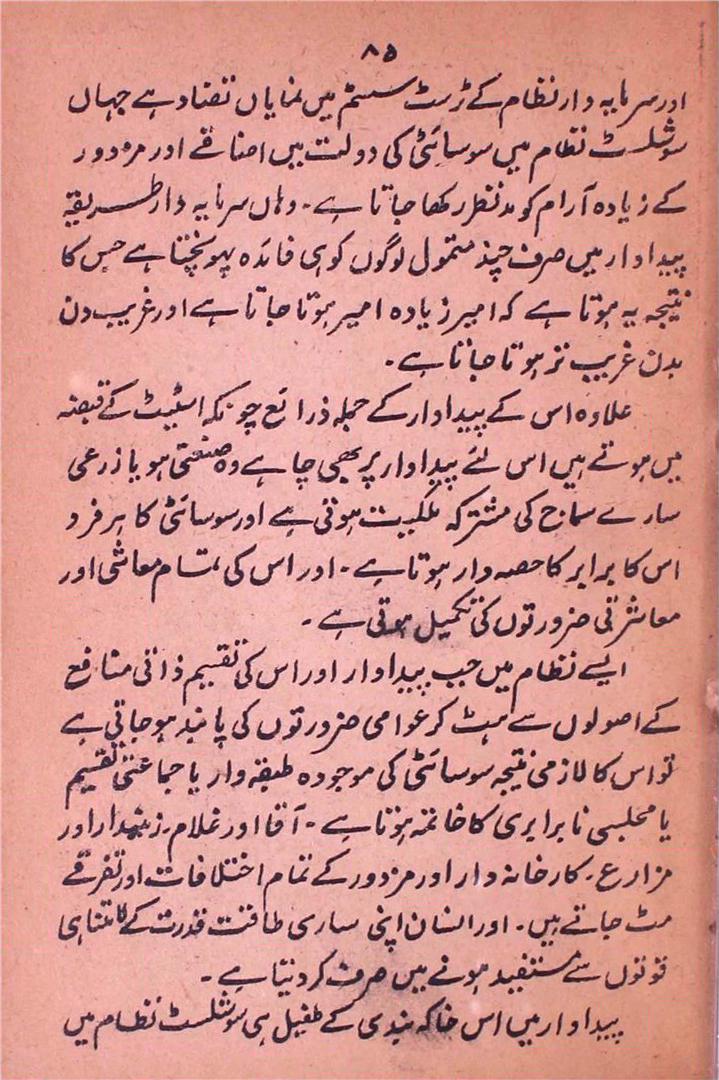 ۸۵
اور سرمایہ دار نظام کے ٹرسٹ سسٹم میں نمایاں تضاد ہے جہاں
سوشلسٹ نظام میں سوسائٹی کی دولت میں اضافے اور مزدور
کے زیادہ آرام کو مدنظر رکھا جاتا ہے۔ وہاں سرمایہ دار طریقہ
پیداوار میں صرف چند متمول لوگوں کو ہی فائدہ پہونچتا ہے جس کا
نتیجہ یہ ہوتا ہے کہ امیر زیادہ امیر ہوتا جاتا ہے اور غریب دن
بدن غریب تر ہوتا جاتا ہے۔
علاوہ اس کے پیداوار کے جملہ ذرائع چونکہ اسٹیٹ کے قبضہ
میں ہوتے ہیں اس لئے پیداوار پر بھی چاہے وہ صنعتی ہو یا زرعی
سارے سماج کی مشترکہ ملکیت ہوتی ہے اور سوسائٹی کا ہر فرد
اس کا برابر کا حصہ دار ہوتا ہے۔ اور اس کی تمام معاشی اور
معاشرتی ضرورتوں کی تکمیل ہوتی ہے۔
ایسے نظام میں جب پیداوار اور اس کی تقسیم ذاتی منافع
کے اصولوں سے ہٹ کر عوامی ضرورتوں کی پابند ہو جاتی ہے
تو اس کا لازمی نتیجہ سوسائٹی کی موجودہ طبقہ وار یا جماعتی تقسیم
یا مجلسی نابرابری کا خاتمہ ہوتا ہے۔ آقا اور غلام۔ زمیندار اور
مزارع۔ کارخانہ دار اور مزدور کے تمام اختلافات اور تفرقے
مٹ جاتے ہیں۔ اور انسان اپنی ساری طاقت قدرت کے لامتناہی
قوتوں سے مستفید ہونے میں صرف کر دیتا ہے۔
پیداوار میں اس خاکہ بندی کے طفیل ہی سوشلسٹ نظام میں